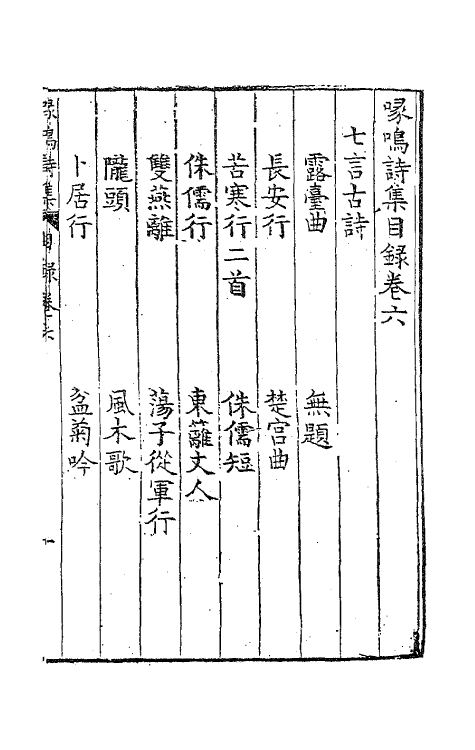 喙鳴詩集目録卷六
七言古詩
露臺曲　無題
長安行　楚宫曲
苦寒行二首　侏儒短
侏儒行　東籬丈人
雙燕離　蕩子從軍行
隴頭　風木歌
卜居行　盆菊吟
喙鳴詩集 目録卷六 一